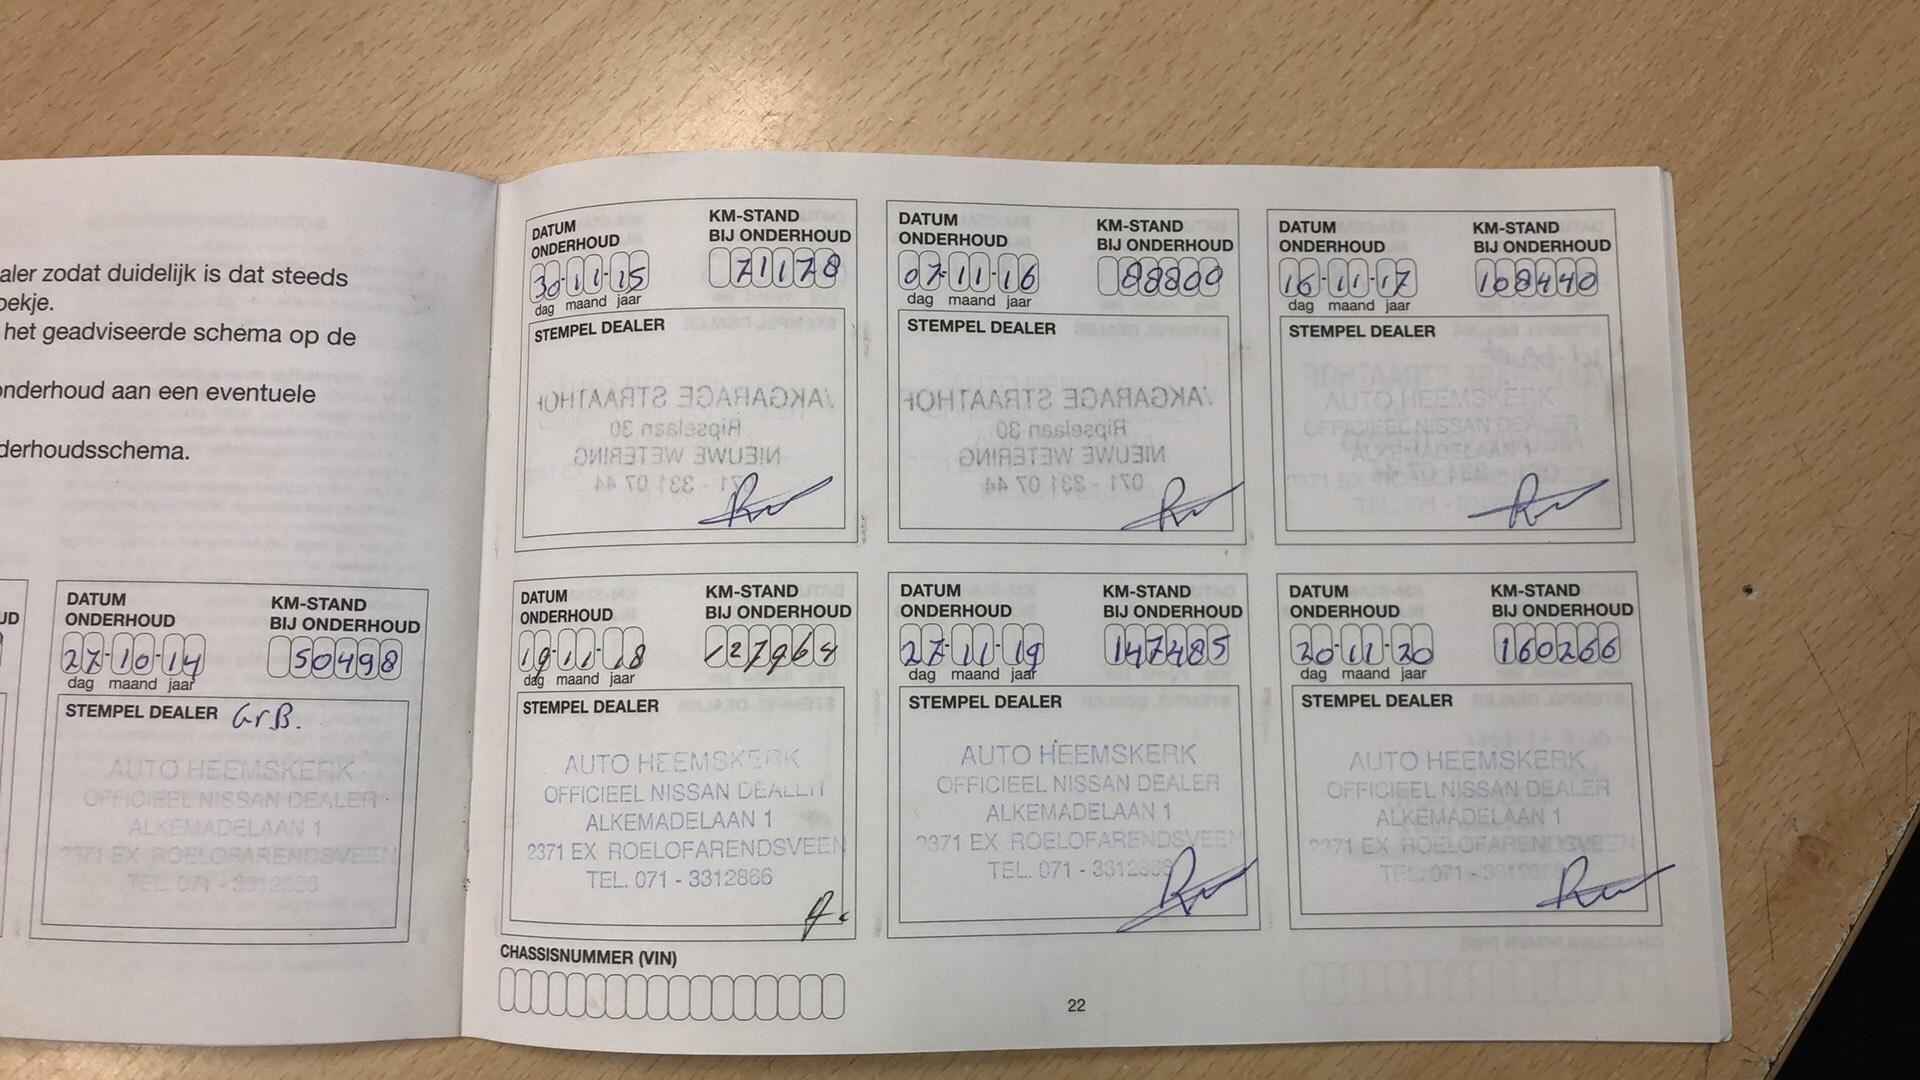 aler zodat duidelijk is dat steeds
oekje.
het geadviseerde schema op de
onderhoud aan een eventuele
derhoudsschema.
UD
DATUM
ONDERHOUD
KM-STAND
BIJ ONDERHOUD
27-10-14
50498
dag maand jaar
STEMPEL DEALER GrB.
AUTO HEEMSKERK
OFFICIEEL NISSAN DEALER
ALKEMADELAAN 1
2371 EX ROELOFARENDSVEEN
TEL. 071 - 3312866
DATUM
ONDERHOUD
KM-STAND
BIJ ONDERHOUD
30-11-15
71178
dag maand jaar
STEMPEL DEALER
VAKGARAGE STRAATHOF
Ripselaan 30
NIEUWE WETERING
071 - 331 07 44
DATUM
ONDERHOUD
KM-STAND
BIJ ONDERHOUD
07-11-16
88809
dag maand jaar
STEMPEL DEALER
VAKGARAGE STRAATHOF
Ripselaan 30
NIEUWE WETERING
071 - 331 07 44
DATUM
ONDERHOUD
KM-STAND
BIJ ONDERHOUD
16-11-17
108440
dag maand jaar
STEMPEL DEALER
AUTO HEEMSKERK
OFFICIEEL NISSAN DEALER
DATUM
ONDERHOUD
KM-STAND
BIJ ONDERHOUD
19-11-18
127964
dag maand jaar
STEMPEL DEALER
AUTO HEEMSKERK
OFFICIEEL NISSAN DEALER
ALKEMADELAAN 1
2371 EX ROELOFARENDSVEEN
TEL. 071 - 3312866
DATUM
ONDERHOUD
KM-STAND
BIJ ONDERHOUD
27-11-19
147485
dag maand jaar
STEMPEL DEALER
AUTO HEEMSKERK
OFFICIEEL NISSAN DEALER
ALKEMADELAAN 1
2371 EX ROELOFARENDSVEEN
TEL. 071 - 3312866
DATUM
ONDERHOUD
KM-STAND
BIJ ONDERHOUD
20-11-20
160266
dag maand jaar
STEMPEL DEALER
AUTO HEEMSKERK
OFFICIEEL NISSAN DEALER
ALKEMADELAAN 1
2371 EX ROELOFARENDSVEEN
TEL. 071 - 3312866
CHASSISNUMMER (VIN)
22